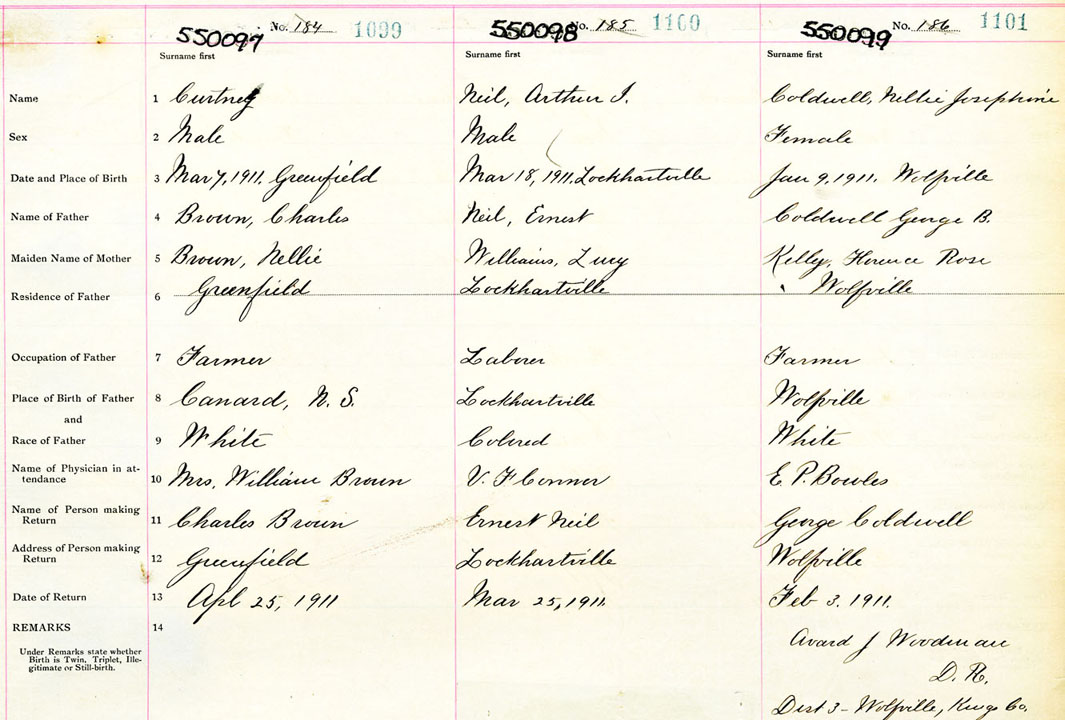 550097 No. 184 1099 550098 No. 185 1100 550099 No. 186 1101
Surname first Surname first Surname first
Name 1 Curtney Neil, Arthur I. Coldwell, Nellie Josephine
Sex 2 Male Male Female
Date and Place of Birth 3 Mar 7, 1911. Greenfield Mar 18, 1911. Lockhartville Jan 9. 1911. Wolfville
Name of Father 4 Brown, Charles Neil, Ernest Coldwell George B.
Maiden Name of Mother 5 Brown, Nellie Williams, Lucy Kelly, Florence Rose
Residence of Father 6 Greenfield Lockhartville Wolfville
Occupation of Father 7 Farmer Laborer Farmer
Place of Birth of Father 8 Canard, N. S. Lockhartville Wolfville
and
Race of Father 9 White Colored White
Name of Physician in at-
tendance 10 Mrs. William Brown V. F Connor E. P. Bowles
Name of Person making
Return 11 Charles Brown Ernest Neil George Coldwell
Address of Person making
Return 12 Greenfield Lockhartville Wolfville
Date of Return 13 Apl 25, 1911 Mar 25, 1911. Feb 3. 1911.
REMARKS 14
Under Remarks state whether
Birth is Twin, Triplet, Ille-
gitimate or Still-birth.
Avard J Woodman
D. R.
Dist 3 - Wolfville, Kings Co.